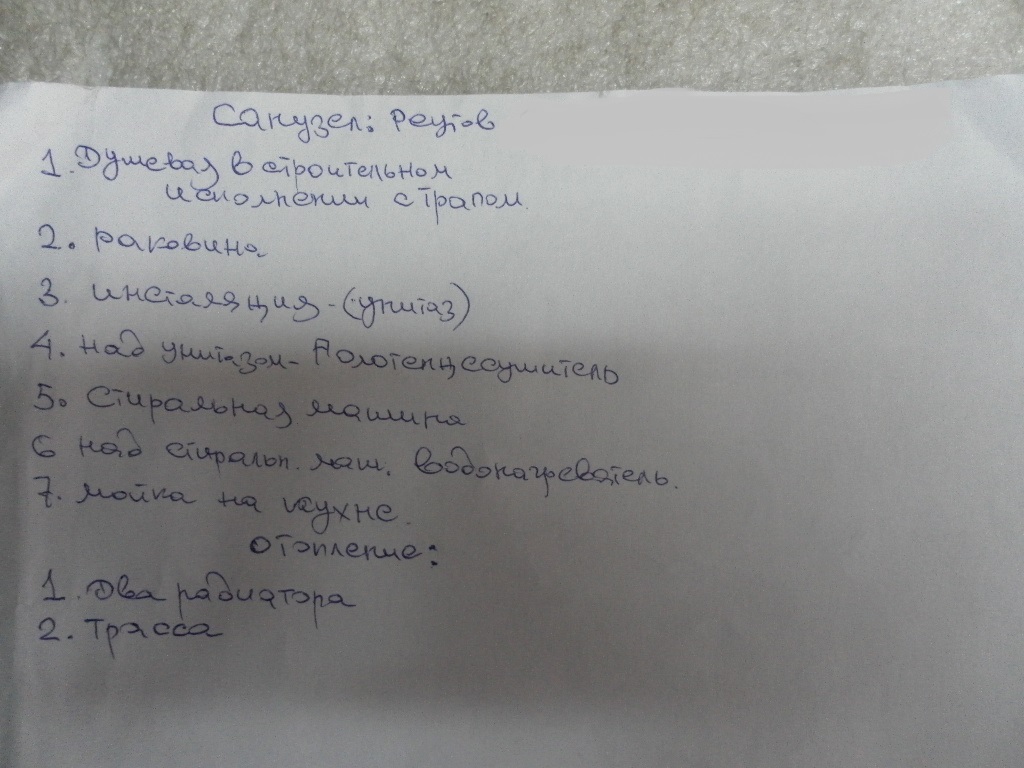 Санузел: Реутов
1. Душевая в строительном
исполнении с трапом.
2. раковина
3. инсталяция - (унитаз)
4. над унитазом - Полотенцесушитель
5. Стиральная машина
6 над стиральн. маш. водонагреватель.
7. мойка на кухне.
Отопление:
1. Два радиатора
2. Трасса